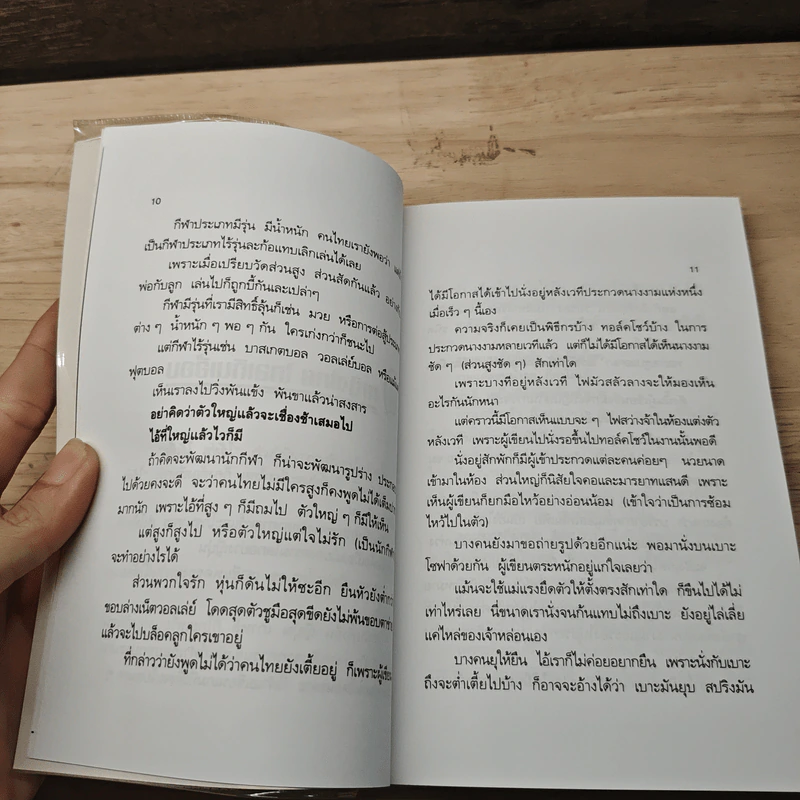 10
กีฬาประเภทมีรุ่น มีน้ำหนัก คนไทยเรายังพอว่า
เป็นกีฬาประเภทไร้รุ่นละก้อแทบเลิกเล่นได้เลย
เพราะเมื่อเปรียบวัดส่วนสูง ส่วนสัดกันแล้ว
พ่อกับลูก เล่นไปก็ถูกบี้กันและเปล่าๆ
กีฬามีรุ่นที่เรามีสิทธิ์ลุ้นก็เช่น มวย หรือการต่อสู้
ต่าง ๆ น้ำหนัก ๆ พอ ๆ กัน ใครเก่งกว่าก็ชนะไป
แต่กีฬาไร้รุ่นเช่น บาสเกตบอล วอลเล่ย์บอล
ฟุตบอล
เห็นเราลงไปวิ่งพันแข้ง พันขาแล้วน่าสงสาร
อย่าคิดว่าตัวใหญ่แล้วจะเชื่องช้าเสมอไป
ไอ้ที่ใหญ่แล้วไวก็มี
ถ้าคิดจะพัฒนานักกีฬา ก็น่าจะพัฒนารูปร่าง
ไปด้วยคงจะดี จะว่าคนไทยไม่มีใครสูงก็คงพูดไม่ได้เต็ม
มากนัก เพราะไอ้ที่สูง ๆ ก็มีถมไป ตัวใหญ่ ๆ ก็มีให้เห็น
แต่สูงก็สูงไป หรือตัวใหญ่แต่ใจไม่รัก (เป็นนักกีฬา
จะทำอย่างไรได้
ส่วนพวกใจรัก หุ่นก็ดันไม่ให้ซะอีก ยืนหัวยังต่ำกว่า
ขอบล่างเน็ตวอลเล่ย์ โดดสุดตัวชูมือสุดขีดยังไม่พ้นขอบ
แล้วจะไปบล็อคลูกใครเขาอยู่
ที่กล่าวว่ายังพูดไม่ได้ว่าคนไทยยังเตี้ยอยู่ ก็เพราะผู้เขียน
11
ได้มีโอกาสได้เข้าไปนั่งอยู่หลังเวทีประกวดนางงามแห่งหนึ่ง
เมื่อเร็ว ๆ นี้เอง
ความจริงก็เคยเป็นพิธีกรบ้าง ทอล์คโชว์บ้าง ในการ
ประกวดนางงามหลายเวทีแล้ว แต่ก็ไม่ได้มีโอกาสได้เห็นนางงาม
ชัด ๆ (ส่วนสูงชัด ๆ) สักเท่าใด
เพราะบางทีอยู่หลังเวที ไฟมัวสลัวลางจะให้มองเห็น
อะไรกันนักหนา
แต่คราวนี้มีโอกาสเห็นแบบจะ ๆ ไฟสว่างจ้าในห้องแต่งตัว
หลังเวที เพราะผู้เขียนไปนั่งรอขึ้นไปทอล์คโชว์ในงานนั้นพอดี
นั่งอยู่สักพักก็มีผู้เข้าประกวดแต่ละคนค่อยๆ นวยนาด
เข้ามาในห้อง ส่วนใหญ่ก็นิสัยใจคอและมารยาทแสนดี เพราะ
เห็นผู้เขียนก็ยกมือไหว้อย่างอ่อนน้อม (เข้าใจว่าเป็นการซ้อม
ไหว้ไปในตัว)
บางคนยังมาขอถ่ายรูปด้วยอีกแน่ะ พอมานั่งบนเบาะ
โซฟาด้วยกัน ผู้เขียนตระหนักอยู่แก่ใจเลยว่า
แม้นจะใช้แม่แรงยืดตัวให้ตั้งตรงสักเท่าใด ก็ขืนไปได้ไม่
เท่าไหร่เลย นี่ขนาดเรานั่งจนก้นแทบไม่ถึงเบาะ ยังอยู่ไล่เลี่ย
แค่ไหล่ของเจ้าหล่อนเอง
บางคนยุให้ยืน ไอ้เราก็ไม่ค่อยอยากยืน เพราะนั่งกับเบาะ
ถึงจะต่ำเตี้ยไปบ้าง ก็อาจจะอ้างได้ว่า เบาะมันยุบ สปริงมัน